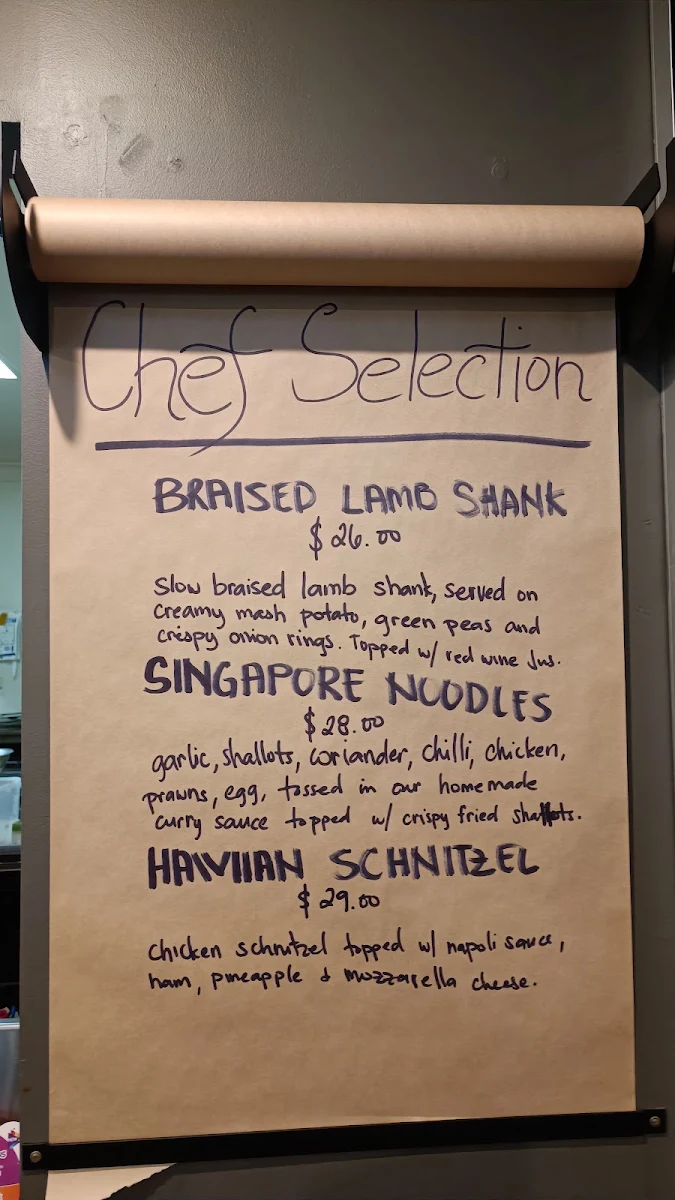 Chef Selection
BRAISED LAMB SHANK
$26.00
Slow braised lamb shank, served on
creamy mash potato, green peas and
crispy onion rings. Topped w/ red wine Jus.
SINGAPORE NOODLES
$28.00
garlic, shallots, coriander, chilli, chicken,
prawns, egg, tossed in our homemade
curry sauce topped w/ crispy fried shallots.
HAWIIAN SCHNITZEL
$29.00
chicken schnitzel topped w/ napoli sauce,
ham, pineapple & mozzarella cheese.